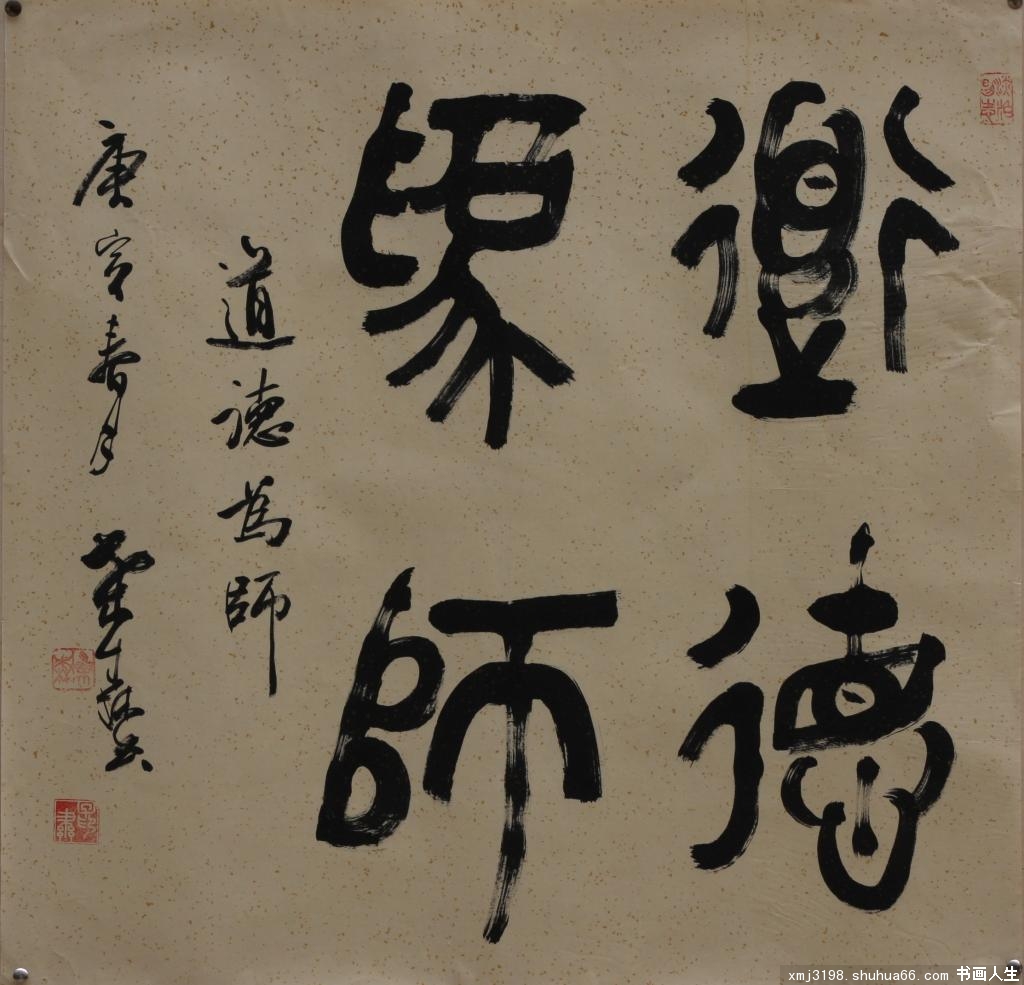 道德
為師
道德為師
庚寅春月
xmj3198.shuhua66.com 书画人生